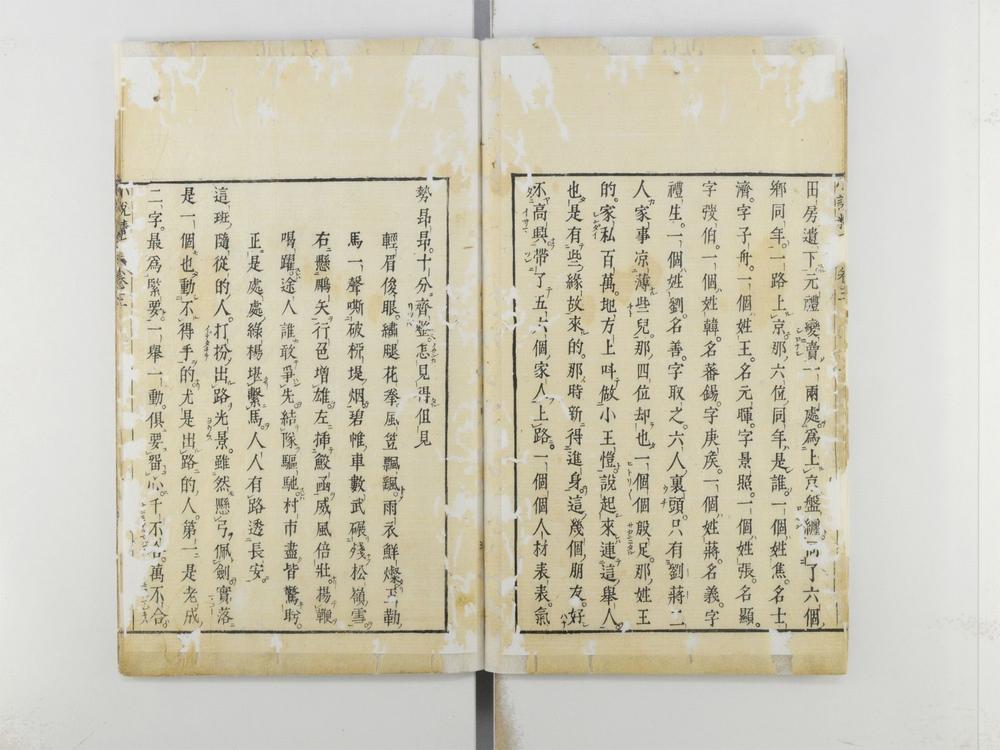 田房遺下元禮變賣一兩處爲上京盤纒同了六個
鄉同年一路上京那六位同年是誰一個姓焦名士
濟字子舟一個姓王名元暉字景照一個姓張名顯
字弢伯一個姓韓名蕃錫字庚矦一個姓蔣名義字
禮生一個姓劉名善字取之六人裏頭只有劉蔣二
人家事凉薄些兒那四位却也一個個殷足那姓王
的家私百萬地方上呌做小王愷說起來連這舉人
也是有些緣故來的那時新得進身這幾個朋友好
不高興帶了五六個家人上路一個個人材表表氣
勢昂昂十分齊整怎見得但見
輕眉俊眼繡腿花拳風笠飄飄雨衣鮮燦玉勒
馬一聲嘶破柳堤烟碧帷車數武碾殘松嶺雪
右懸鵰矢行色增雄左插鮫函威風倍壯揚鞭
喝躍途人誰敢爭先結隊驅馳村市盡皆驚盻
正是處處綠楊堪繫馬人人有路透長安
這班隨從的人打扮出路光景雖然懸弓佩劍實落
是一個也動不得手的尤是出路的人第一是老成
二字最爲緊要一舉一動俱要畱心千不 萬不合